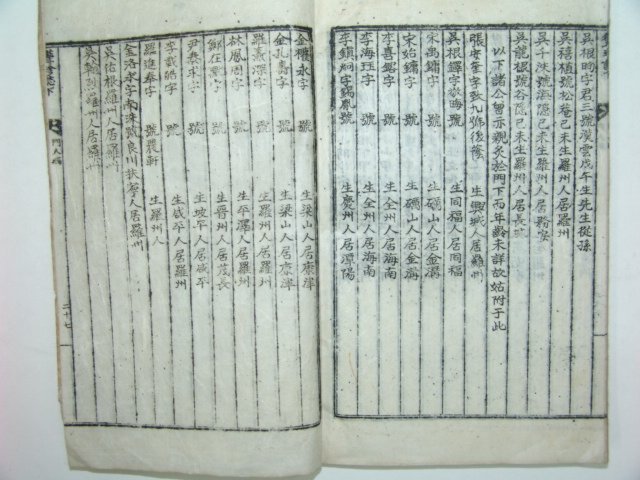 吳根時字君三號漢雲戊午生先生從孫
吳禧植號松菴己未生羅州人居羅州
吳千洙號海隱己未生羅州人居務安
吳龍根號松隱己未生羅州人居長城
以下諸公曾示親炙於門下而年齡未詳故姑附于此
張字致九號後篠 生興城人居羅州
吳根鐸字敬晦號 生同福人居同福
宋禹鏞字 號 生礪山人居金溝
宋始鏞字 號 生礪山人居金溝
李喜鐸字 號 生全州人居海南
李海珏字 號 生全州人居海南
李鎭綱字 號 生慶州人居潭陽
金權永字 號 生梁山人居康津
金孔壽字 號 生梁山人居康津
羅燾深字 號 生羅州人居羅州
林鳳周字 號 生平澤人居羅州
鄭在字 號 生晉州人居茂長
尹泰求字 號 生坡平人居咸平
李載皓字 號 生咸平人居羅州
羅進奉字 號農軒 生羅州人
金洛永字南洙號良川扶寧人居羅州
吳佑根羅州人居羅州
吳羅州人居羅州
門人
二十七